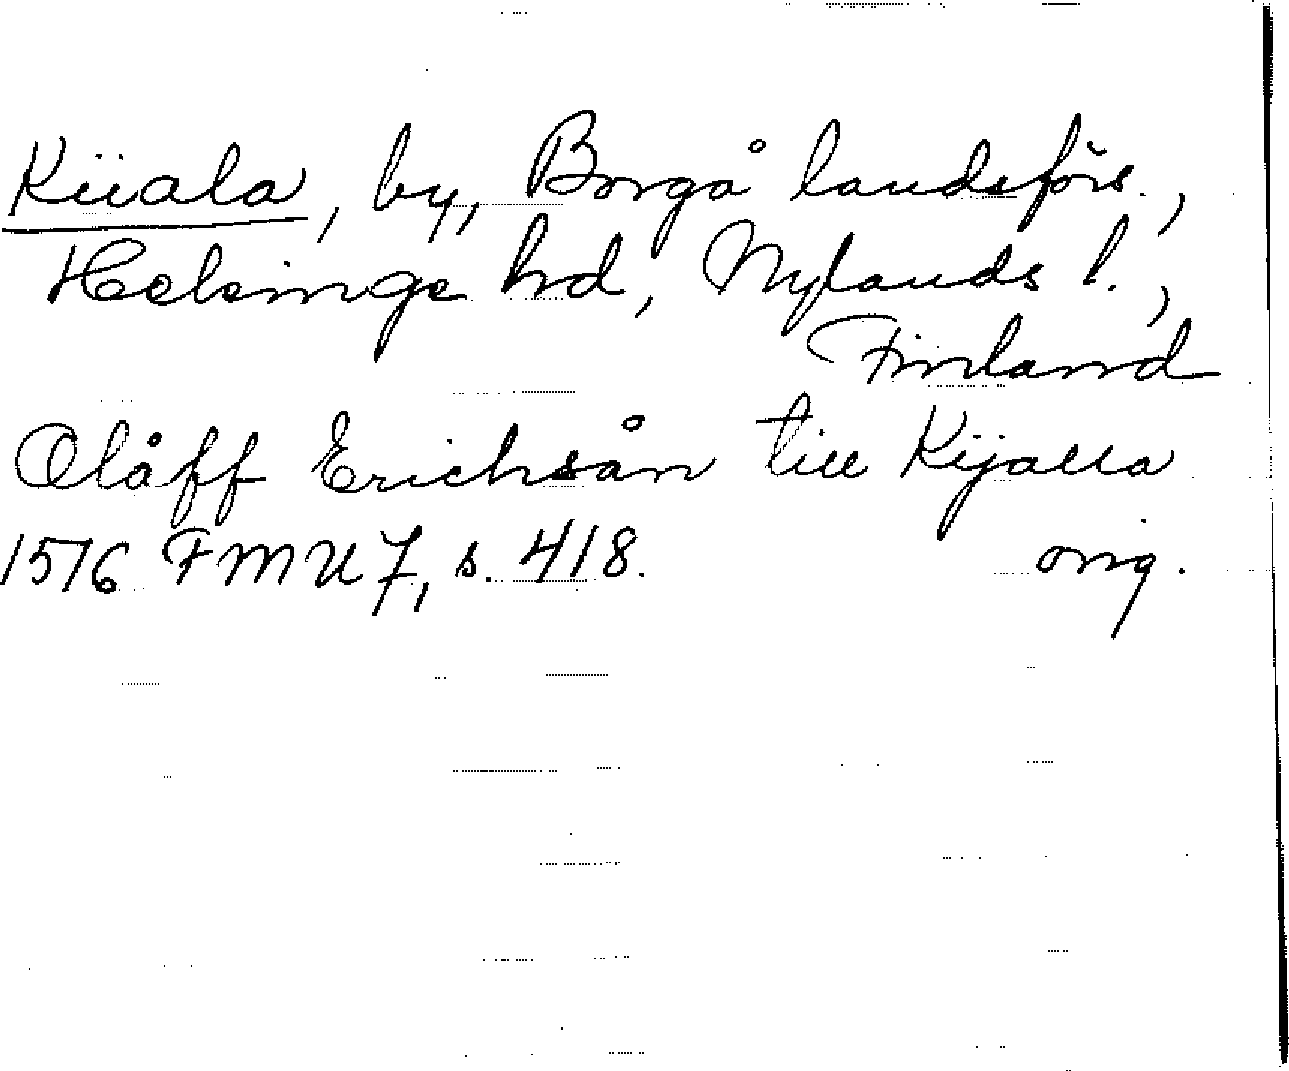 Kiiala, by, Borgå landsförs.,
Helsinge hd, Nylands l.,
Finland
Olåff Erichsån till Kijalla
1576 FMU 7, s. 418. orig.